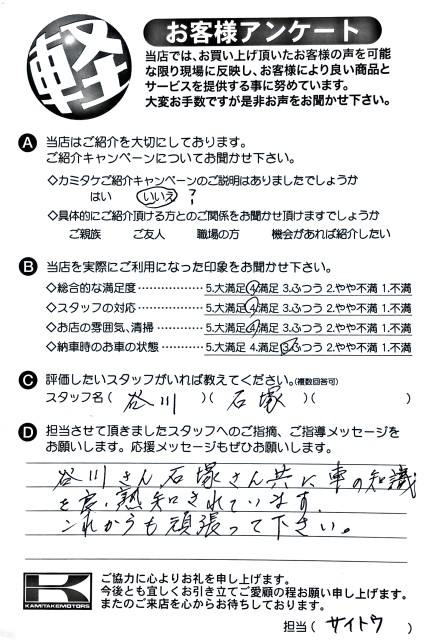 軽
お客様アンケート
当店では、お買い上げ頂いたお客様の声を可能
な限り現場に反映し、お客様により良い商品と
サービスを提供する事に努めています。
大変お手数ですが是非お声をお聞かせ下さい。
A 当店はご紹介を大切にしてあります。
ご紹介キャンペーンについてお聞かせ下さい。
◇カミタケご紹介キャンペーンのご説明はありましたでしょうか
はい いいえ ?
◇具体的にご紹介頂ける方とのご関係をお聞かせ頂けますでしょうか
ご親族 ご友人 職場の方 機会があれば紹介したい
B 当店を実際にご利用になった印象をお聞かせ下さい。
◇総合的な満足度 ……………… 5.大満足 4.満足 3.ふつう 2.やや不満 1.不満
◇スタッフの対応 ……………… 5.大満足 4.満足 3.ふつう 2.やや不満 1.不満
◇お店の雰囲気、清掃 ………… 5.大満足 4.満足 3.ふつう 2.やや不満 1.不満
◇納車時のお車の状態 ………… 5.大満足 4.満足 3.ふつう 2.やや不満 1.不満
C 評価したいスタッフがいれば教えてください。(複数回答可)
スタッフ名 ( 谷川 ) ( 石塚 ) ( )
D 担当させて頂きましたスタッフへのご指摘、ご指導メッセージを
お願いします。応援メッセージもぜひお願いします。
谷川さん石塚さん共に、車の知識
を良く熟知されています。
これからも頑張って下さい。
K
KAMITAKEMOTORS
ご協力に心よりお礼を申し上げます。
今後とも宜しくお引き立てご愛顧の程お願い申し上げます。
またのご来店を心からお待ちしております。
担当 ( サイトウ )